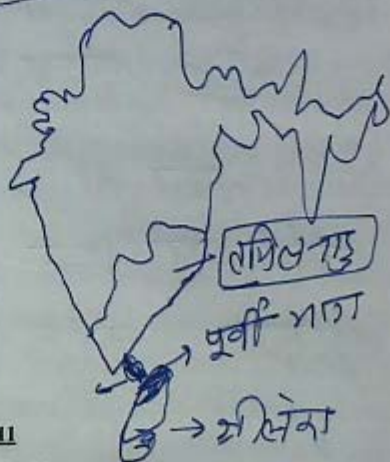 तमिलनाडु
पूर्वी भाग
श्रीलंका
11